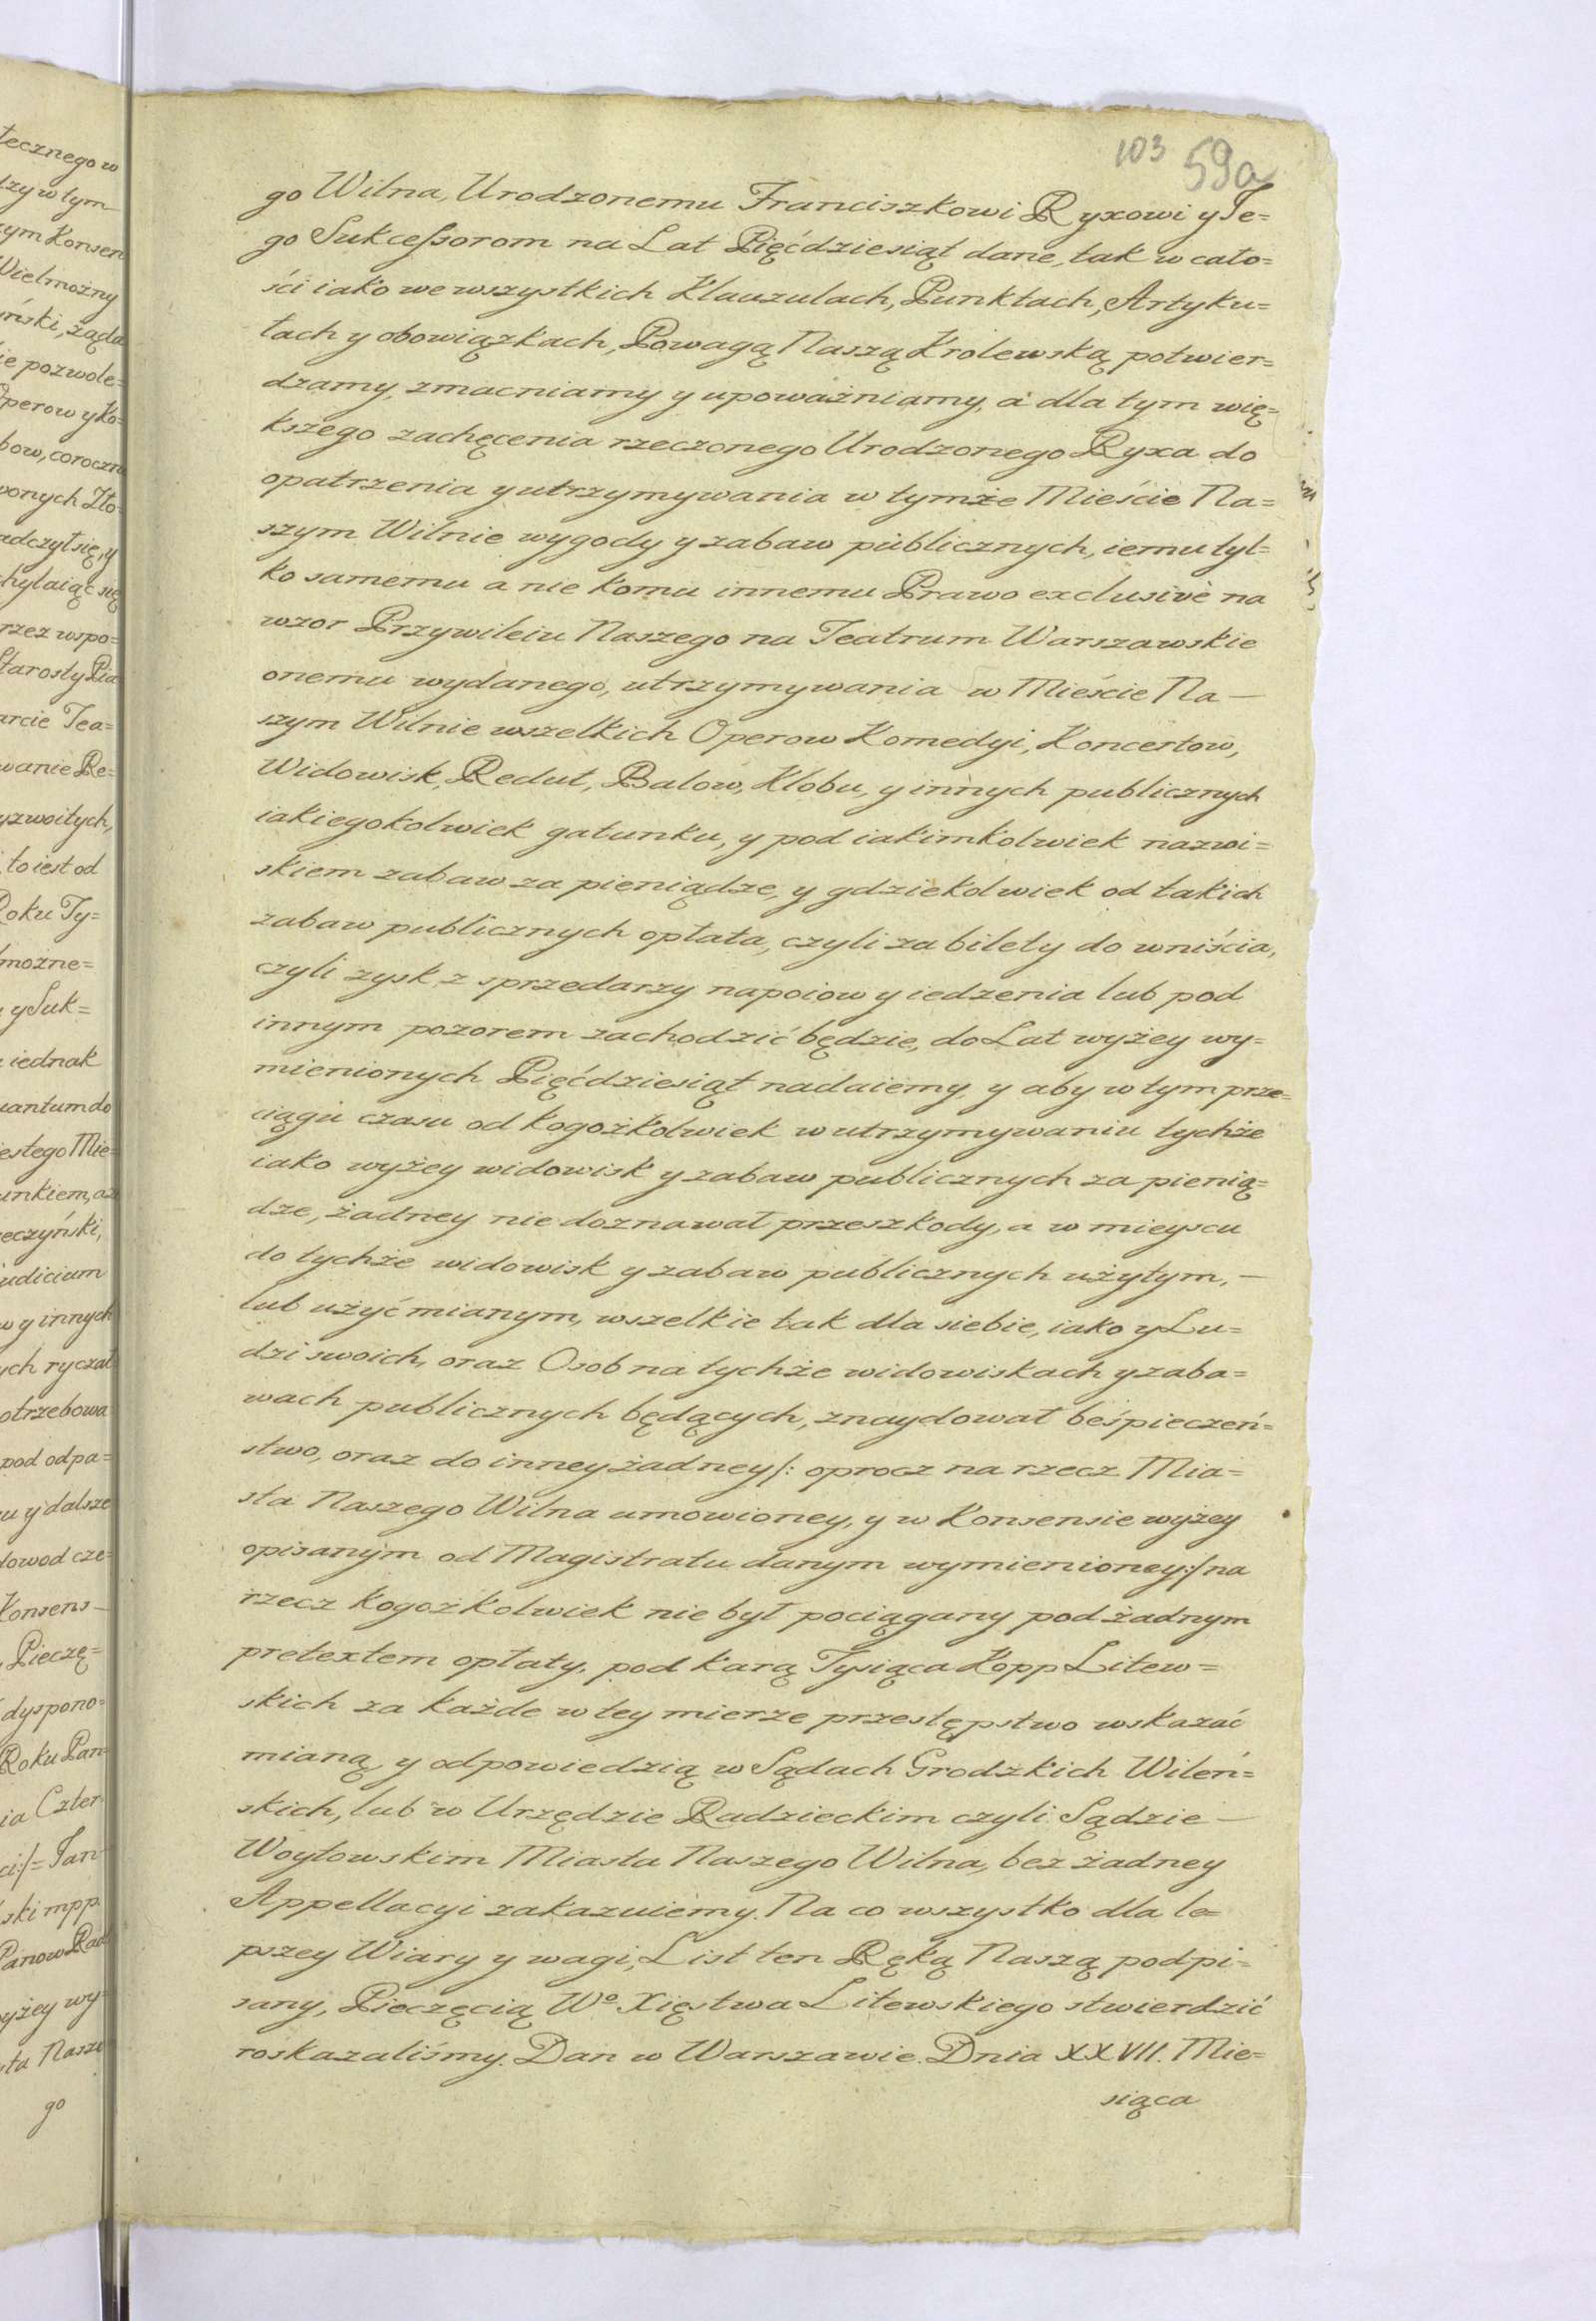 103 59a
go Wilna, Urodzonemu Franciszkowi Ryxowi y Je=
go Sukcessorom na Lat Pięćdziesiąt dane, tak w cało=
ści iako we wszystkich Klauzulach, Punktach, Artyku=
łach y obowiązkach, Powagą Naszą Krolewską potwier=
dzamy, zmacniamy y upoważniamy, a dla tym wię=
kszego zachęcenia rzeczonego Urodzonego Ryxa do
opatrzenia y utrzymywania w tymże Mieście Na=
szym Wilnie wygody y zabaw publicznych, iemu tyl=
ko samemu a nie komu innemu Prawo exclusivè na
wzor Przywileiu Naszego na Teatrum Warszawskie
onemu wydanego, utrzymywania w Mieście Na—
szym Wilnie wszelkich Operow Komedyi, Koncertow,
Widowisk, Redut, Balow, Klobu, y innych publicznych
iakiegokolwiek gatunku, y pod iakimkolwiek nazwi=
skiem zabaw za pieniądze, y gdziekolwiek od takich
zabaw publicznych opłata, czyli za bilety do wniścia,
czyli zysk z sprzedarzy napoiow y iedzenia lub pod
innym pozorem zachodzić będzie, do Lat wyżey wy=
mienionych Pięćdziesiąt nadaiemy, y aby w tym prze=
ciągu czasu od kogożkolwiek w utrzymywaniu tychże
iako wyżey widowisk y zabaw publicznych za pienią=
dze, żadney nie doznawał przeszkody, a w mieyscu
do tychże widowisk y zabaw publicznych użytym,—
lub użyć mianym, wszelkie tak dla siebie, iako y Lu=
dzi swoich, oraz Osob na tychże widowiskach y zaba=
wach publicznych będących, znaydował beśpieczeń=
stwo, oraz do inney żadney /: oprocz na rzecz Mia=
sta Naszego Wilna umowioney, y w Konsensie wyżey
opisanym od Magistratu danym wymienioney :/ na
rzecz kogożkolwiek nie był pociągany pod żadnym
pretextem opłaty, pod karą Tysiąca Kopp Litew=
skich za każde w tey mierze przestępstwo wskazać
mianą, y odpowiedzią w Sądach Grodzkich Wileń=
skich, lub w Urzędzie Radzieckim czyli Sądzie—
Woytowskim Miasta Naszego Wilna, bez żadney
Appellacyi zakazuiemy. Na co wszystko dla le=
pszey Wiary y wagi, List ten Ręką Naszą podpi=
sany, Pieczęcią Wº Xięstwa Litewskiego stwierdzić
roskazaliśmy. Dan w Warszawie. Dnia XXVII. Mie=
siąca